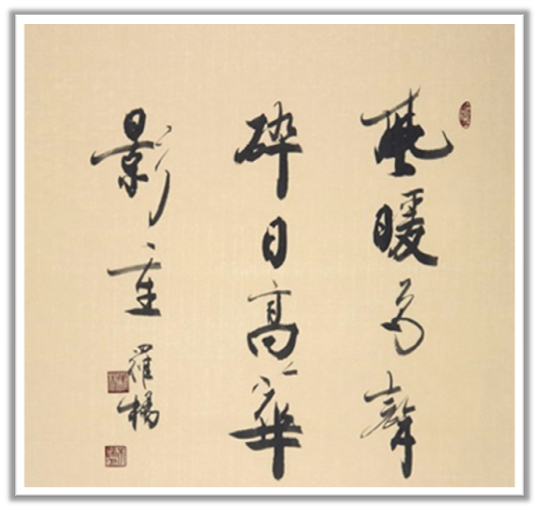 風暖鳥聲
碎日高華
影重
羅楊